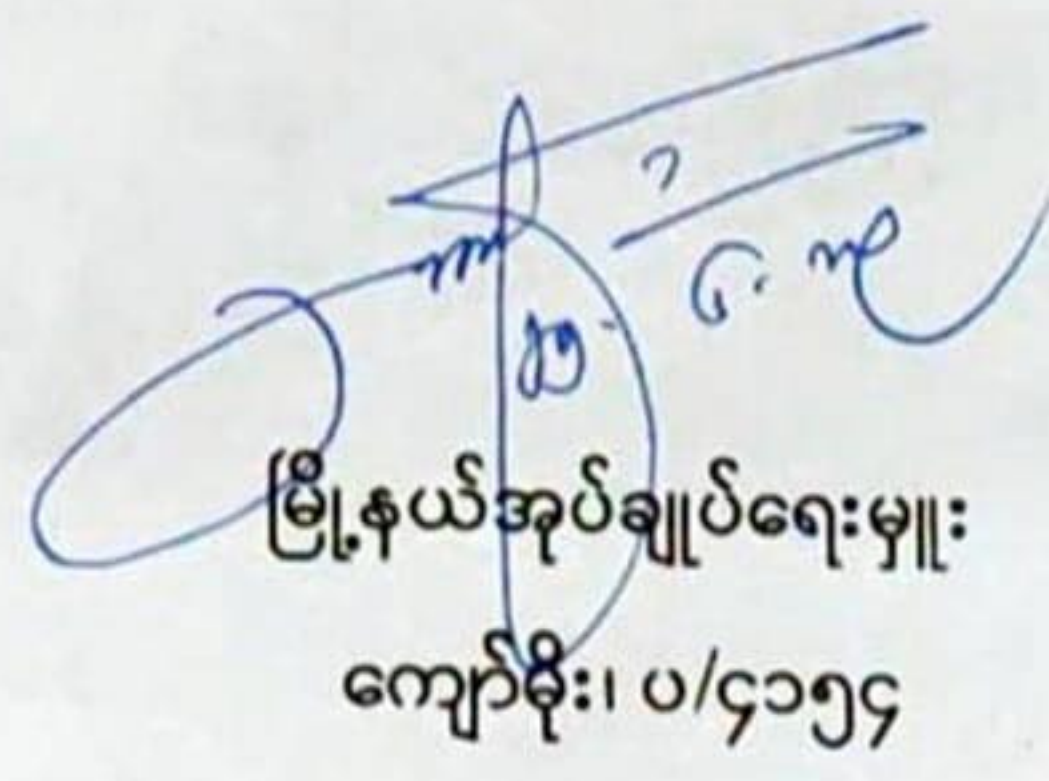 မြို့နယ်အုပ်ချုပ်ရေးမှူး
ကျော်မိုး၊ ပ/၄၁၅၄